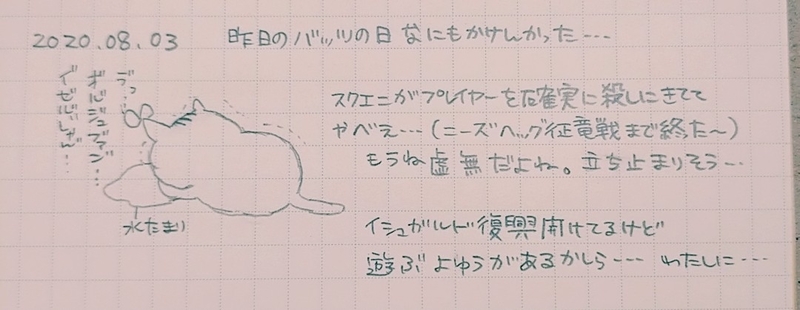 2020.08.03 昨日のバッツの日なにもかけんかった…
オルジュブァン…
水たまり
スクエニがプレイヤーを確実に殺しにきてて
やべえ…(ニーズヘッグ征竜戦まで終た〜)
もうね虚無だよね。立ち止まりそう…
イシュガルド復興開けてるけど
遊ぶよゆうがあるかしら… わたしに…